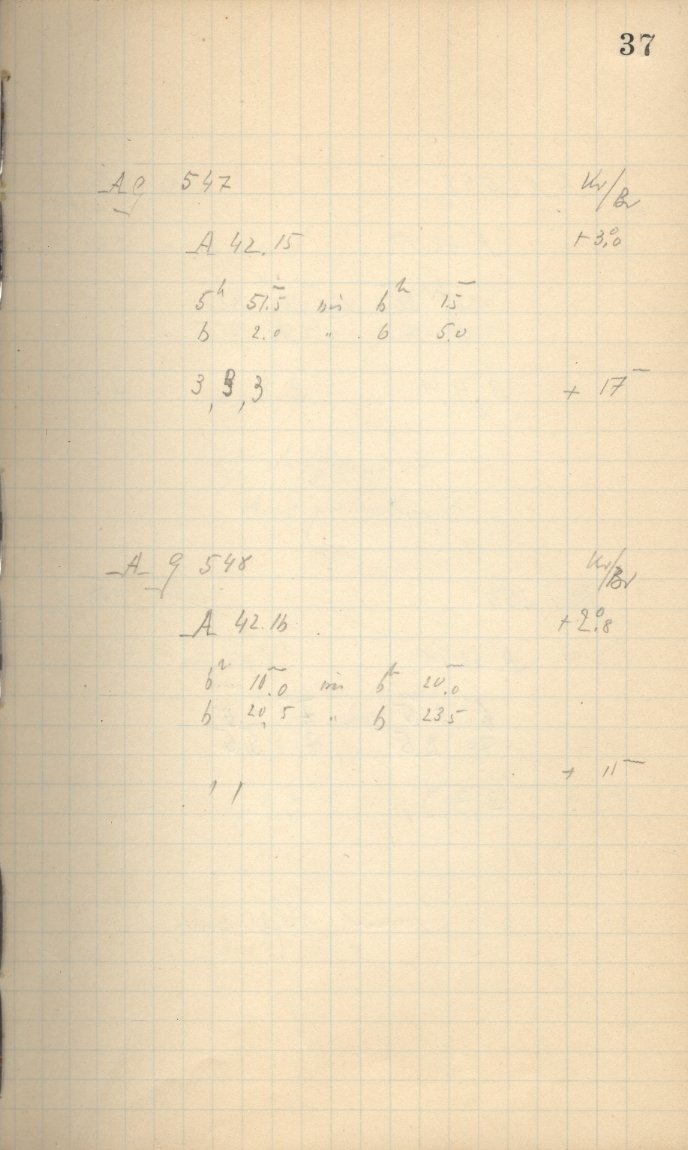 37
AG 547 Kr/Br
A 42.15 +3°.0
5h 51.5 bis 6h 1.5
6 2.0 " 6 5.0
3, 3, 3 + 17
AG 548 Kr/Br
A 42.16 +2°.8
6h 10.0 bis 6h 20.0
6 20.5 " 6 23.5
1 1 + 11